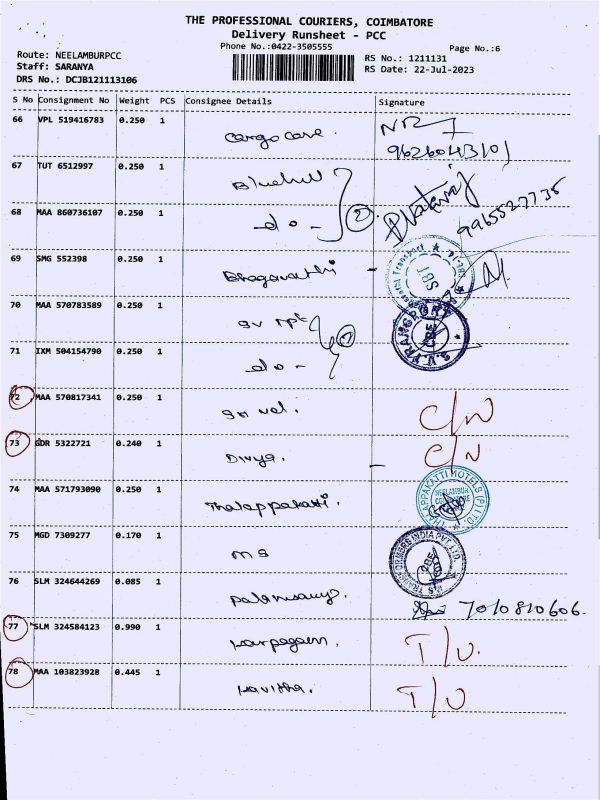 THE PROFESSIONAL COURIERS, COIMBATORE
Delivery Runsheet - PCC
Phone No.:0422-3505555 Page No.:6
Route: NEELAMBURPCC RS No.: 1211131
Staff: SARANYA RS Date: 22-Jul-2023
DRS No.: DCJB121113106
S No Consignment No Weight PCS Consignee Details Signature
66 VPL 519416783 0.250 1 Cargo care.
9626043101
67 TUT 6512997 0.250 1 Bluehill
68 MAA 860736107 0.250 1 -do- 2
9965527735
69 SMG 552398 0.250 1 Bhagavathi - SBT
70 MAA 570783589 0.250 1 SV tpt
71 IXM 504154790 0.250 1 -do-
72 MAA 570817341 0.250 1 C/N
73 GDR 5322721 0.240 1 Divya. C/N
74 MAA 571793090 0.250 1 Thalappakatti. THALAPPAKATTI HOTELS (P) LTD.
75 MGD 7309277 0.170 1 MS
76 SLM 324644269 0.085 1 Palanisamy. 7010810606.
77 SLM 324584123 0.990 1 Karpagam. T/U.
78 MAA 103823928 0.445 1 Kavitha. T/U